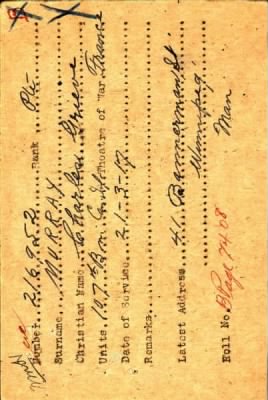 Number 216952 Rank Pte
Surname MURRAY
Christian Name Charles Grieve
Units 107th Bn Can Inf Theatre of War France
Date of Service 21-3-17
Remarks
Latest Address 741 Bannerman St.
Winnipeg
Man
Roll No. B Page 7408